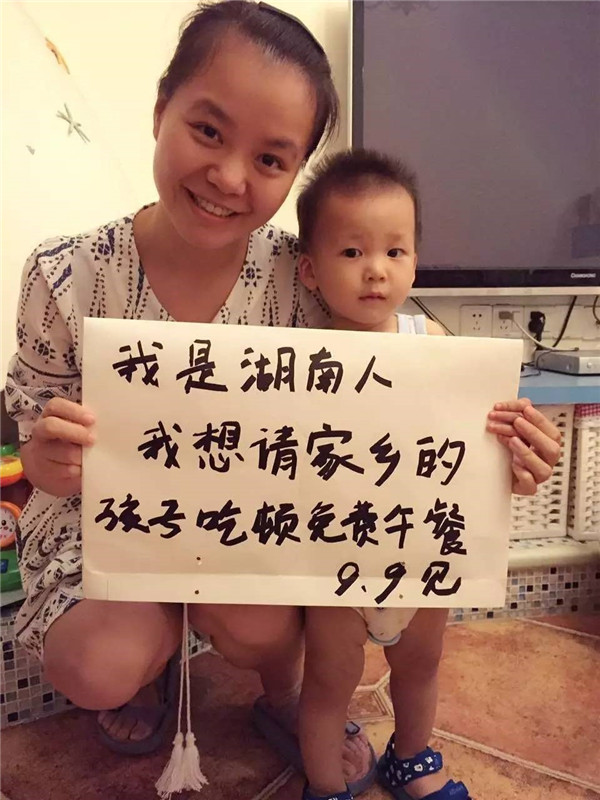 我是湖南人
我想请家乡的
孩子吃顿免费午餐
9.9见
CHANGHONG